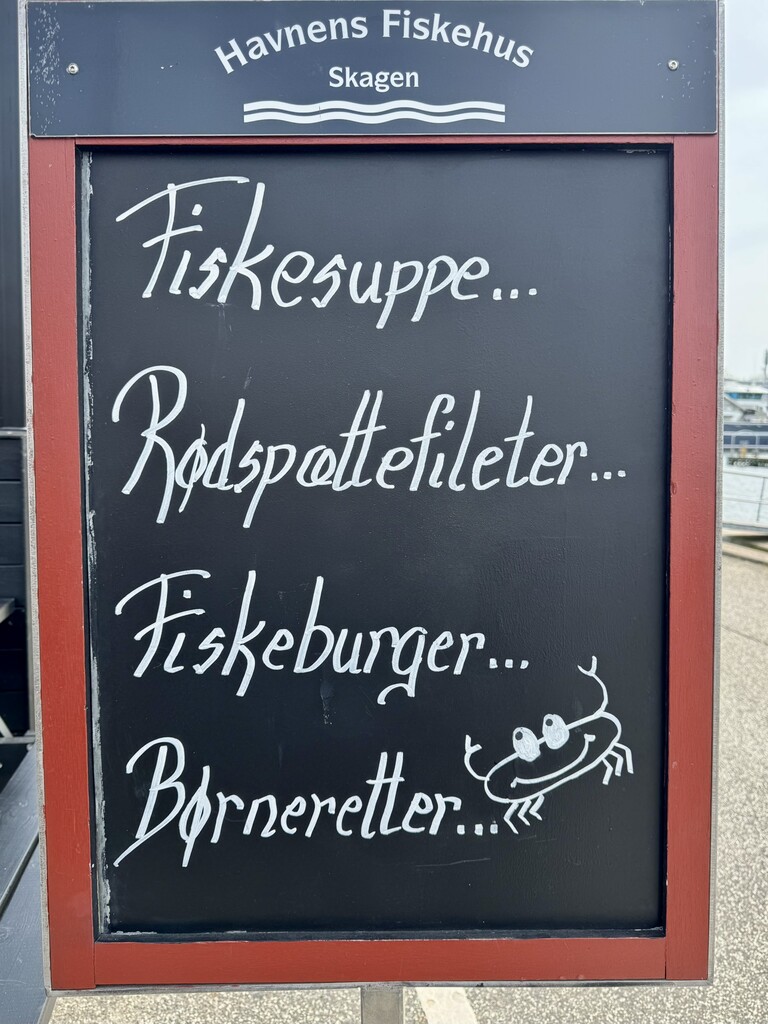 Havnens Fiskehus
Skagen
Fiskesuppe...
Rødspættefileter...
Fiskeburger...
Børneretter...